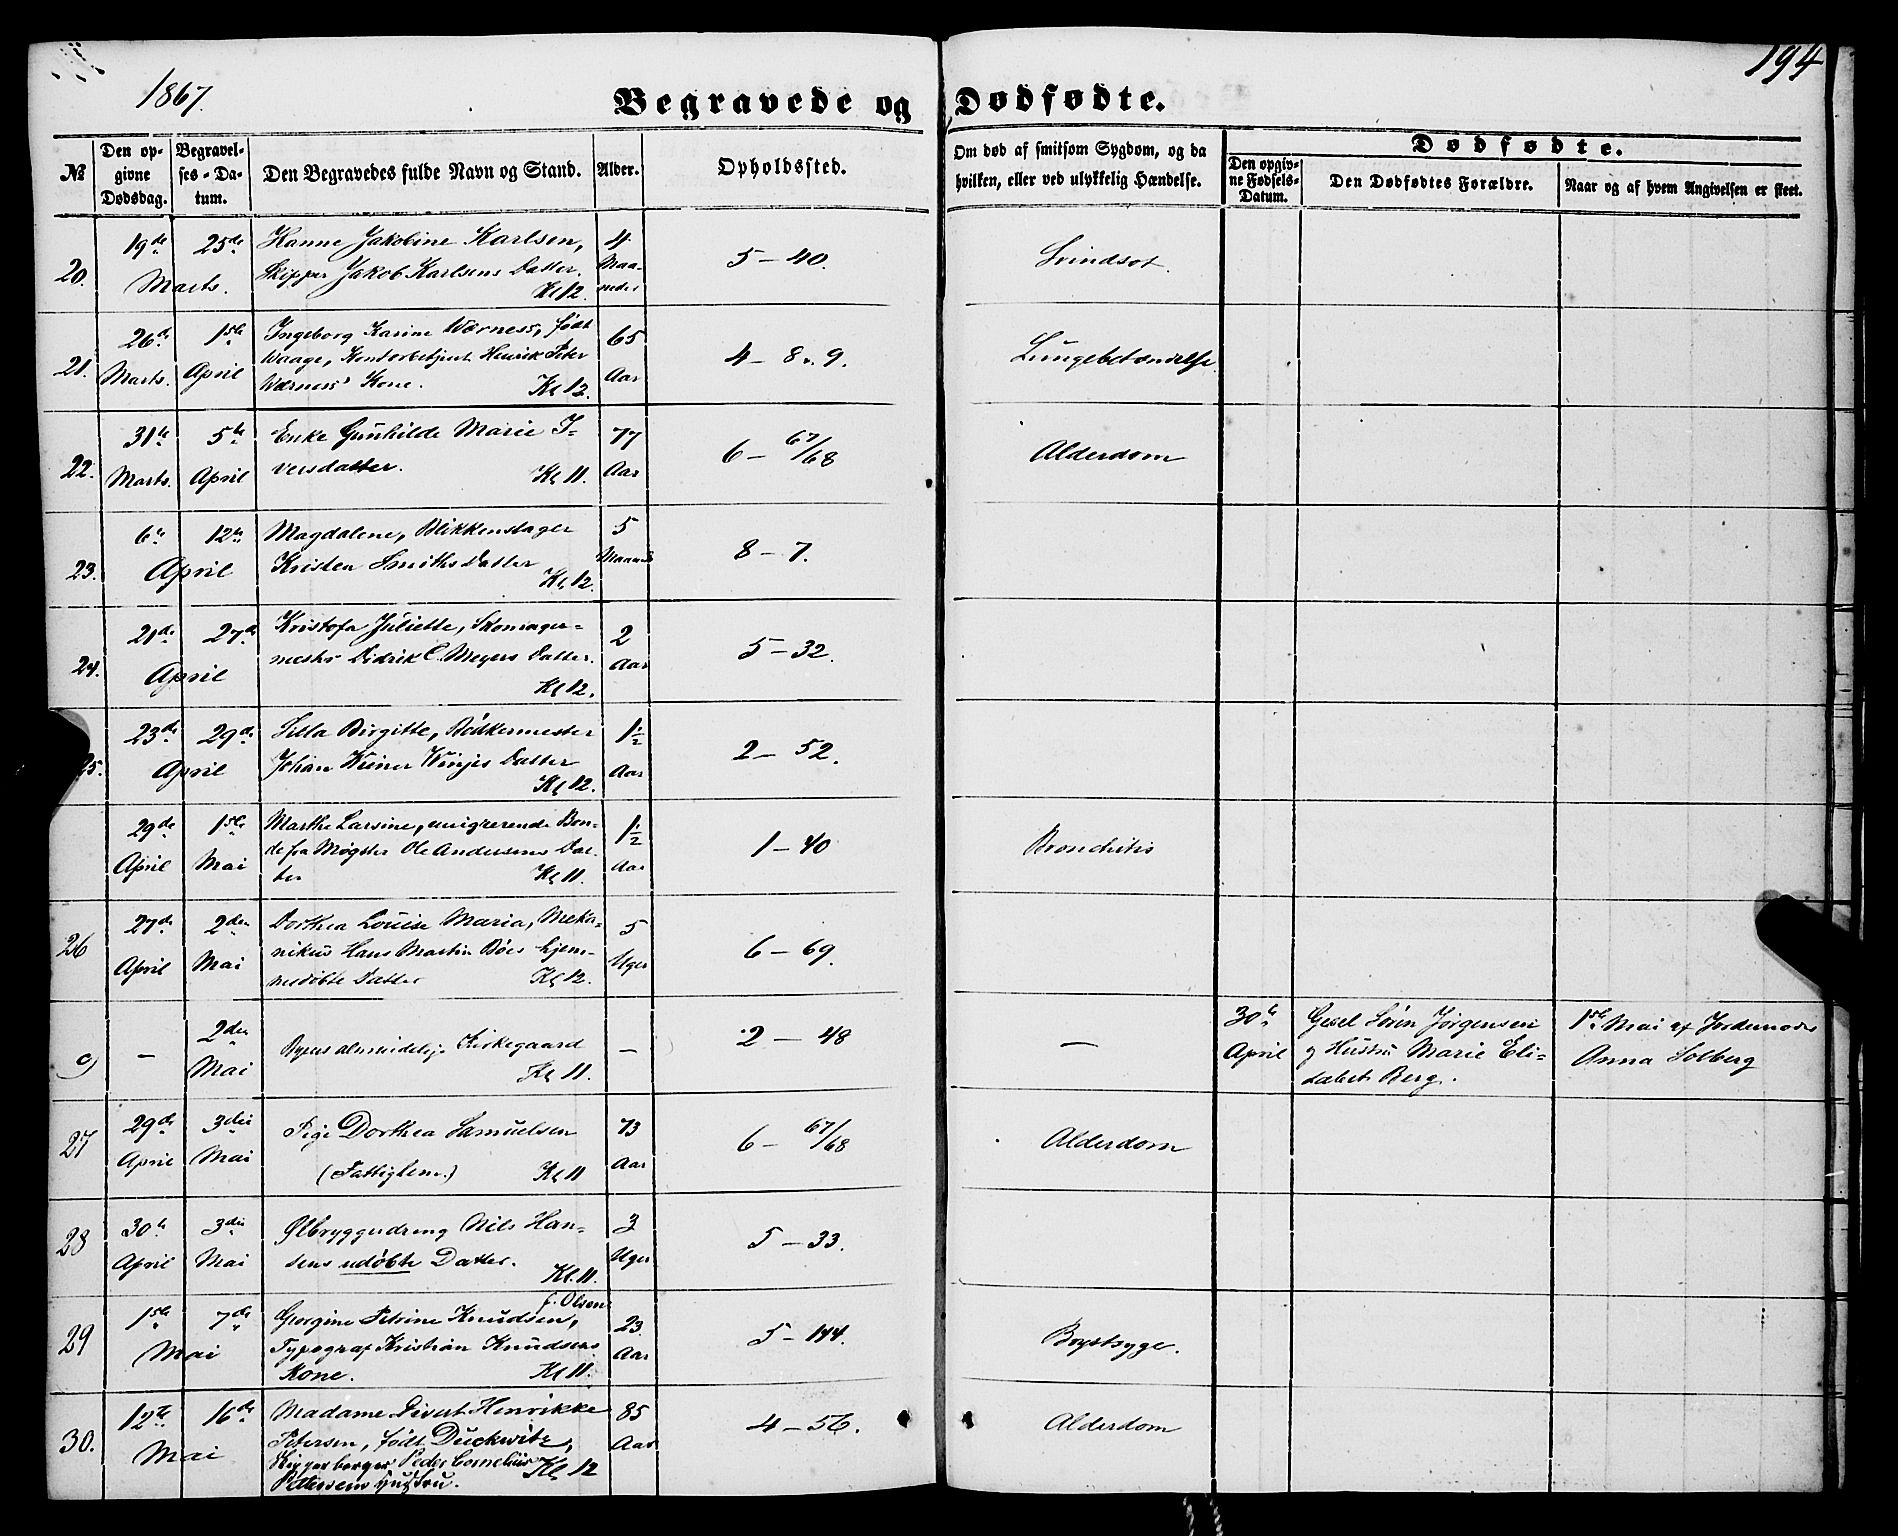 1867.
194
Begravede og Dødfødte.
№
Den opgivne Dødsdag.
Begravelses-Datum.
Den Begravedes fulde Navn og Stand.
Alder.
Opholdssted.
Om død af smitsom Sygdom, og da hvilken, eller ved ulykkelig Hændelse.
Dødfødte.
Den opgivne Fødsels-Datum.
Den Dødfødtes Forældre.
Naar og af hvem Angivelsen er skeet.
20. 19de 25de Marts.
Hanne Jakobine Karlsen,
Skipper Jakob Karlsens Datter.
Kl 12.
4 Maaneder
5 – 40.
Svindsot.
21. 26de Marts. 1ste April
Ingeborg Karine Wærness, født
Waage, Kontorbetjent Henrik Peter
Wærness' Kone. Kl 12.
65 Aar
4 – 8 . 9.
Lungebetændelse
22. 31te Marts. 5te April
Enke Gunhilde Marie I-
versdatter. Kl 11.
77 Aar
6 – 67/68
Alderdom
23. 6te 12te April
Magdalene, Blikkenslager
Kristen Smiths Datter
Kl 12.
5 Maaned
8 – 7.
24. 21de 27de April
Kristofa Juliette, Skomager-
mester Didrik C. Meyers Datter.
Kl 12.
2 Aar
5 – 32.
25. 23de 29de April
Birgitte, Bødkermester
Johan Winjes Datter
Kl 12.
1½ Aar
2 – 52.
29de April 1ste Mai
Marthe Larsine, emigrerende Bon-
de fra Møgster Ole Andersens Dat-
ter Kl 11.
1½ Aar
1 – 40
Bronchitis
26 27de April 2den Mai
Dorthea Louise Maria, Meka-
nikus Hans Martin Bøes hjem-
medøbte Datter Kl 12.
5 Uger
6 – 69.
9 – 2den Mai
Byens almindelige Kirkegaard
Kl 11.
–
2 – 48
–
30te April
Søren Jørgensen
og Hustru Marie Eli-
sabet Berg.
1ste Mai af Jordemoder
Anna Solberg
27 29de April 3die Mai
Pige Dorthea Samuelsen
(Fattiglem.) Kl 11
73 Aar
6 – 67/68
Alderdom
28 30te April 3die Mai
Ølbryggerdreng Nils Han-
sens udøbte Datter.
Kl. 11.
3 Uger
5 – 33.
29 1ste 7de Mai
f. Olsen
Georgine Petrine Knudsen,
Typograf Kristian Knudsens
Kone. Kl 11.
23 Aar
5 – 144.
Brystsyge.
30. 12te 16de Mai
Madame Divert Henrikke
Petersen, født Duckwitz,
Skipperborger Peder Cornelius
Petersens Hustru. Kl 12
85 Aar
4 – 56.
Alderdom